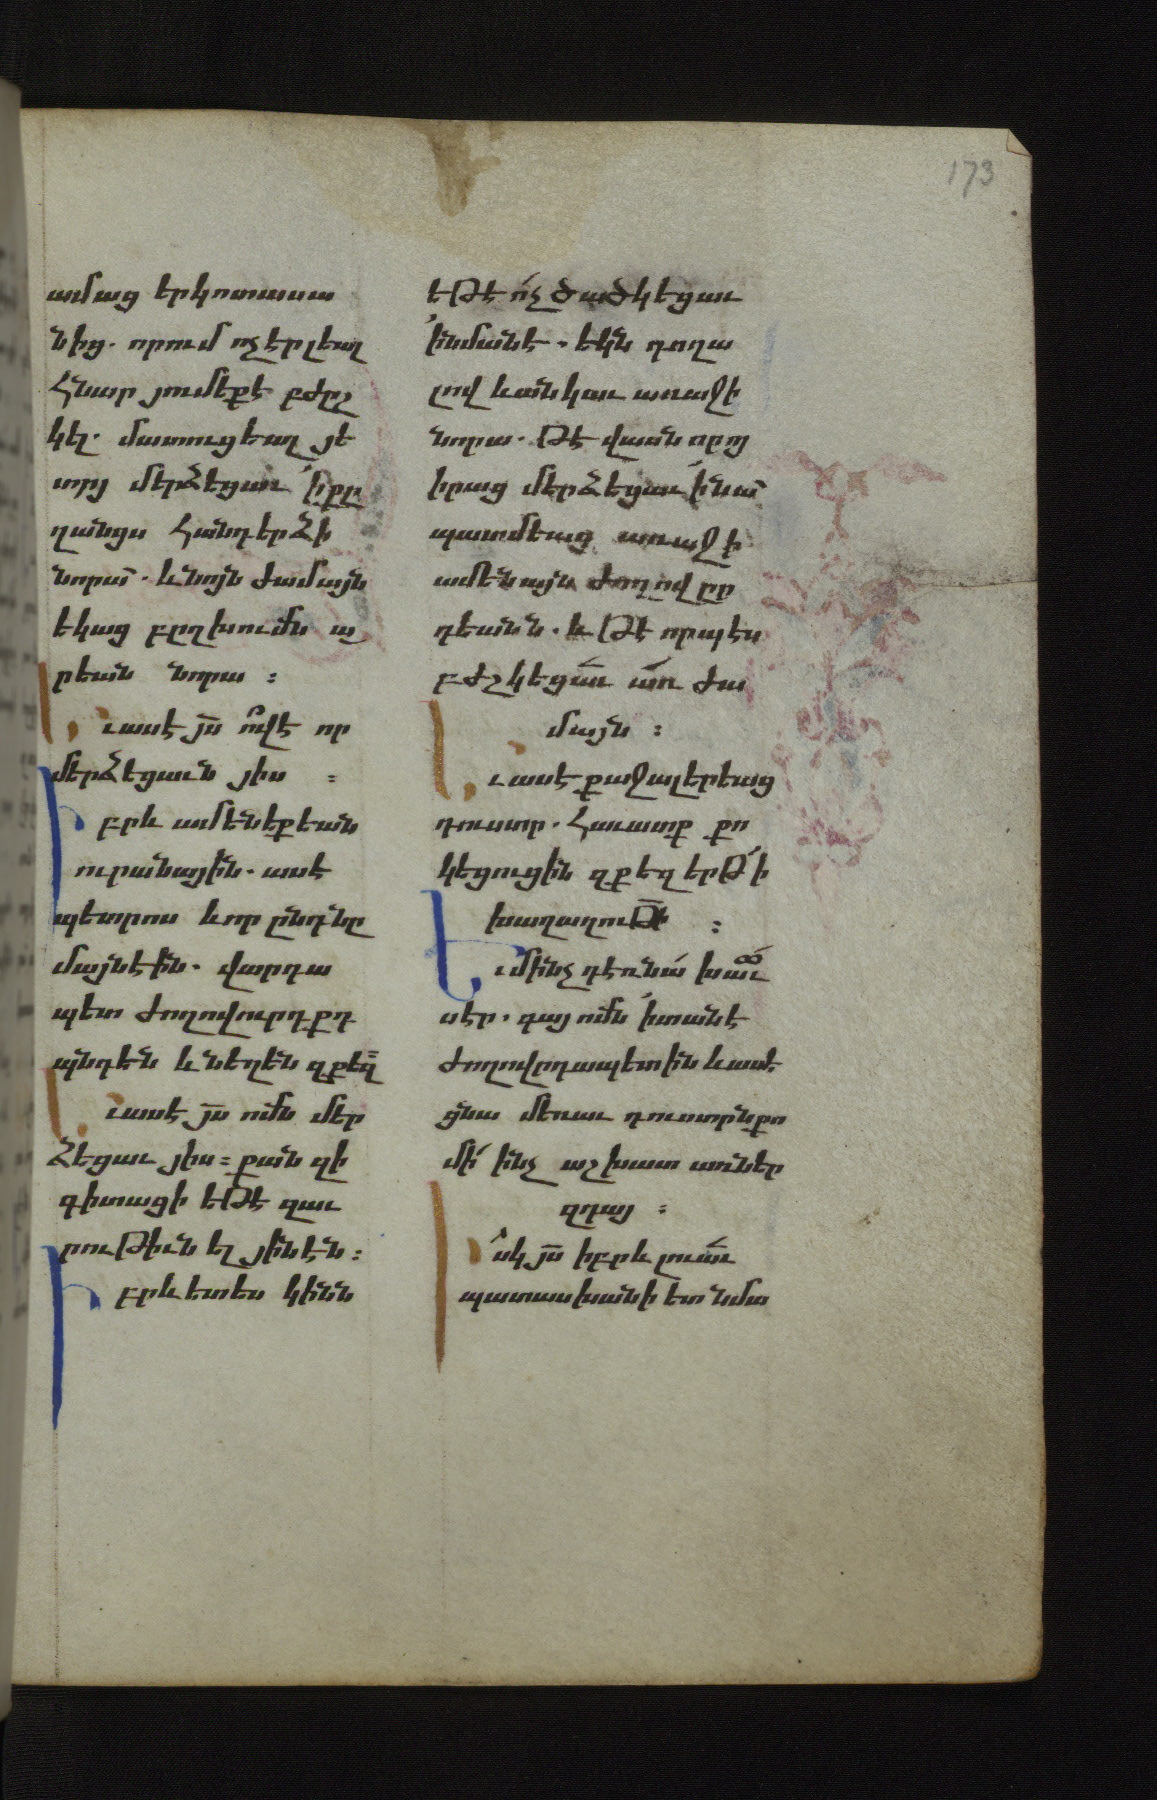 173
ամաց երկոտասա
նից. որում ոչ էր լեալ
հնար յումեքէ բժըշ
կել. մատուցեալ յե
տոյ մերձեցաւ ՚ի քղ
ղանցս հանդերձի
նորա՟. և նոյն ժամայն
եկաց բըղխումն ա
րեան նորա :
Եւ ասէ յս ո՞վ է որ
մերձեցաւն յիս :
Իբրև ամենեքեան
ուրանային. ասէ
պետրոս և որ ընդ նը
մայն էին. վարդա
պետ ժողովուրդքդ
պնդեն և նեղեն զքեզ
Եւ ասէ յս ոմն մեր
ձեցաւ յիս : քանզի
գիտացի եթէ զաւ
րութիւն ել յինէն :
Իբրև ետես կինն
եթէ ո՛չ ծածկեցաւ
՚ի նմանէ. եկն դողա
լով և անկաւ առաջի
նորա. թէ վասն որոյ
իրաց մերձեցաւ ՚ի նա՟
պատմեաց առաջի
ամենայն ժողովըր
դեանն. և թէ որպէս
բժշկեցա՛ւ առ ժա
մայն :
Եւ ասէ քաջալերեաց
դուստր. հաւատք քո
կեցուցին զքեզ երթ ՚ի
խաղաղութի :
Եւ մինչդեռ նա՛ խաւ
սէր. գայ ոմն ՚ի տանէ
ժողովրդապետին և ասէ
ցնա մեռաւ դուստրն քո
մի՛ ինչ աշխատ առներ
զդայ :
Իսկ յս իբրև լուաւ
պատասխանի ետ նմա